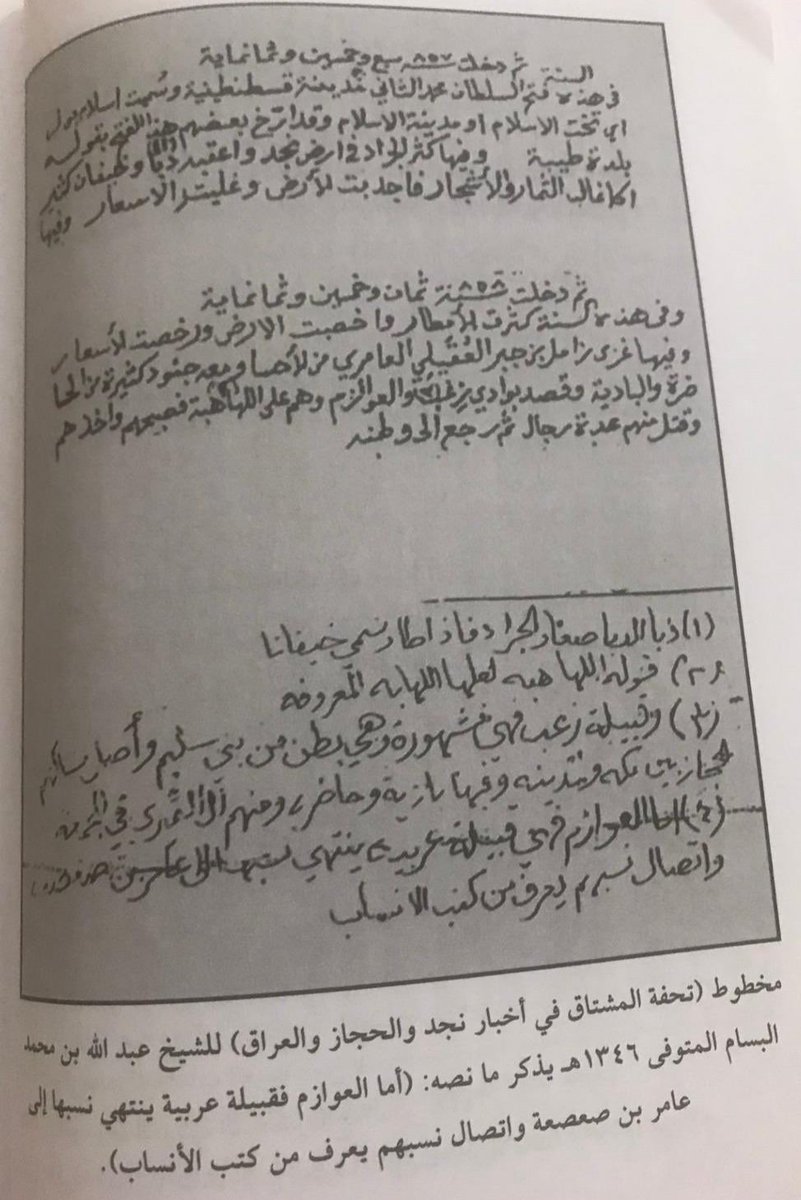 ثم دخلت سنة ٨٥٧ سبع وخمسين وثمانماية
في هذه السنة فتح السلطان محمد الثاني مدينة قسطنطينية وسميت اسلامبول
اي تخت الاسلام او مدينة الاسلام وقد ارخ بعضهم هذا الفتح بقوله
بلدة طيبة وفيها كثر الجراد في ارض نجد واعقبه دبا وخيفان كثير
اكل غالب الثمار والأشجار فاجدبت الأرض وغليت الاسعار وفيها
ثم دخلت سنة ٨٥٨ ثمان وخمسين وثمانماية
وفي هذه السنة كثرت الأمطار واخصبت الارض ورخصت الأسعار
وفيها غزى زامل بن جبر العقيلي العامري من الأحسا ومعه جنود كثيرة من الحا
ضرة والبادية وقصد بوادي زعب والعوازم وهم على اللهاهبة فصبحهم واخذهم
وقتل منهم عدة رجال ثم رجع الى وطنه
(١) دبا الدبا صغار الجراد فاذا طار سمي خيفانا
(٢) قوله اللهاهبه لعلها اللهابه المعروفه
(٣) وقبيلة زعب فهي مشهورة وهي بطن من بني سليم وأصل مساكنهم
الحجاز بين مكه والمدينه وفيها بادية وحاضره ومنهم آل الشمري في
(٤) اما العوازم فهي قبيلة عربيه ينتهي نسبها الى عامر بن صعصعه
واتصال نسبهم يعرف من كتب الانساب
مخطوط (تحفة المشتاق في أخبار نجد والحجاز والعراق) للشيخ عبد الله بن محمد
البسام المتوفى ١٣٤٦هـ يذكر ما نصه: (أما العوازم فقبيلة عربية ينتهي نسبها إلى
عامر بن صعصعة واتصال نسبهم يعرف من كتب الأنساب).